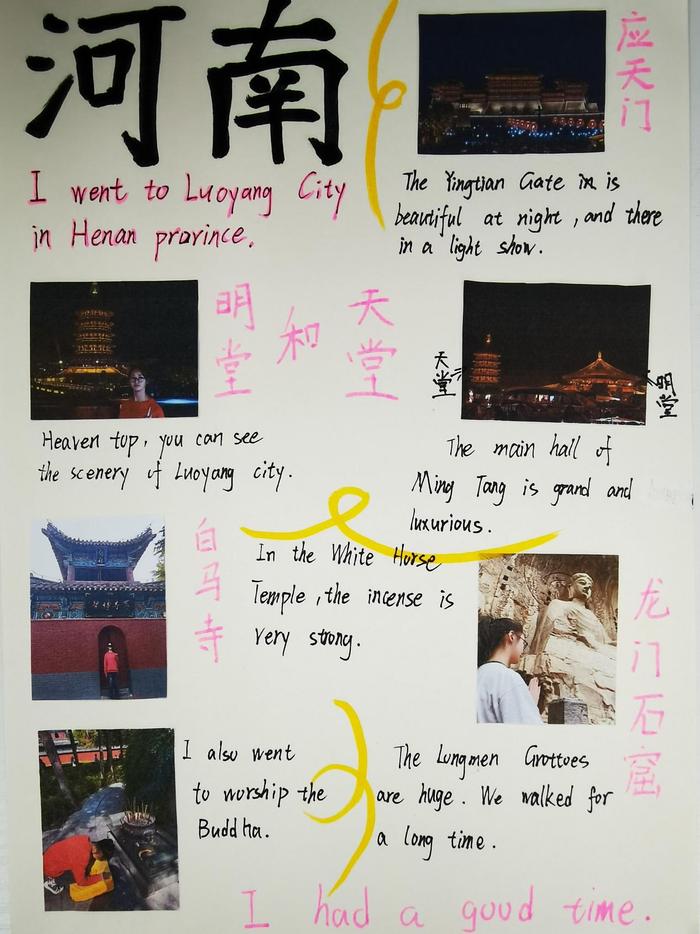 河南
I went to Luoyang City
in Henan province.
应天门
The Yingtian Gate in is
beautiful at night, and there
in a light show.
明堂
和
天堂
天堂
明堂
Heaven top, you can see
the scenery of Luoyang city.
The main hall of
Ming Tang is grand and
luxurious.
白马寺
In the White Horse
Temple, the incense is
very strong.
龙门石窟
I also went
to worship the
Buddha.
The Lungmen Grottoes
are huge. We walked for
a long time.
I had a good time.